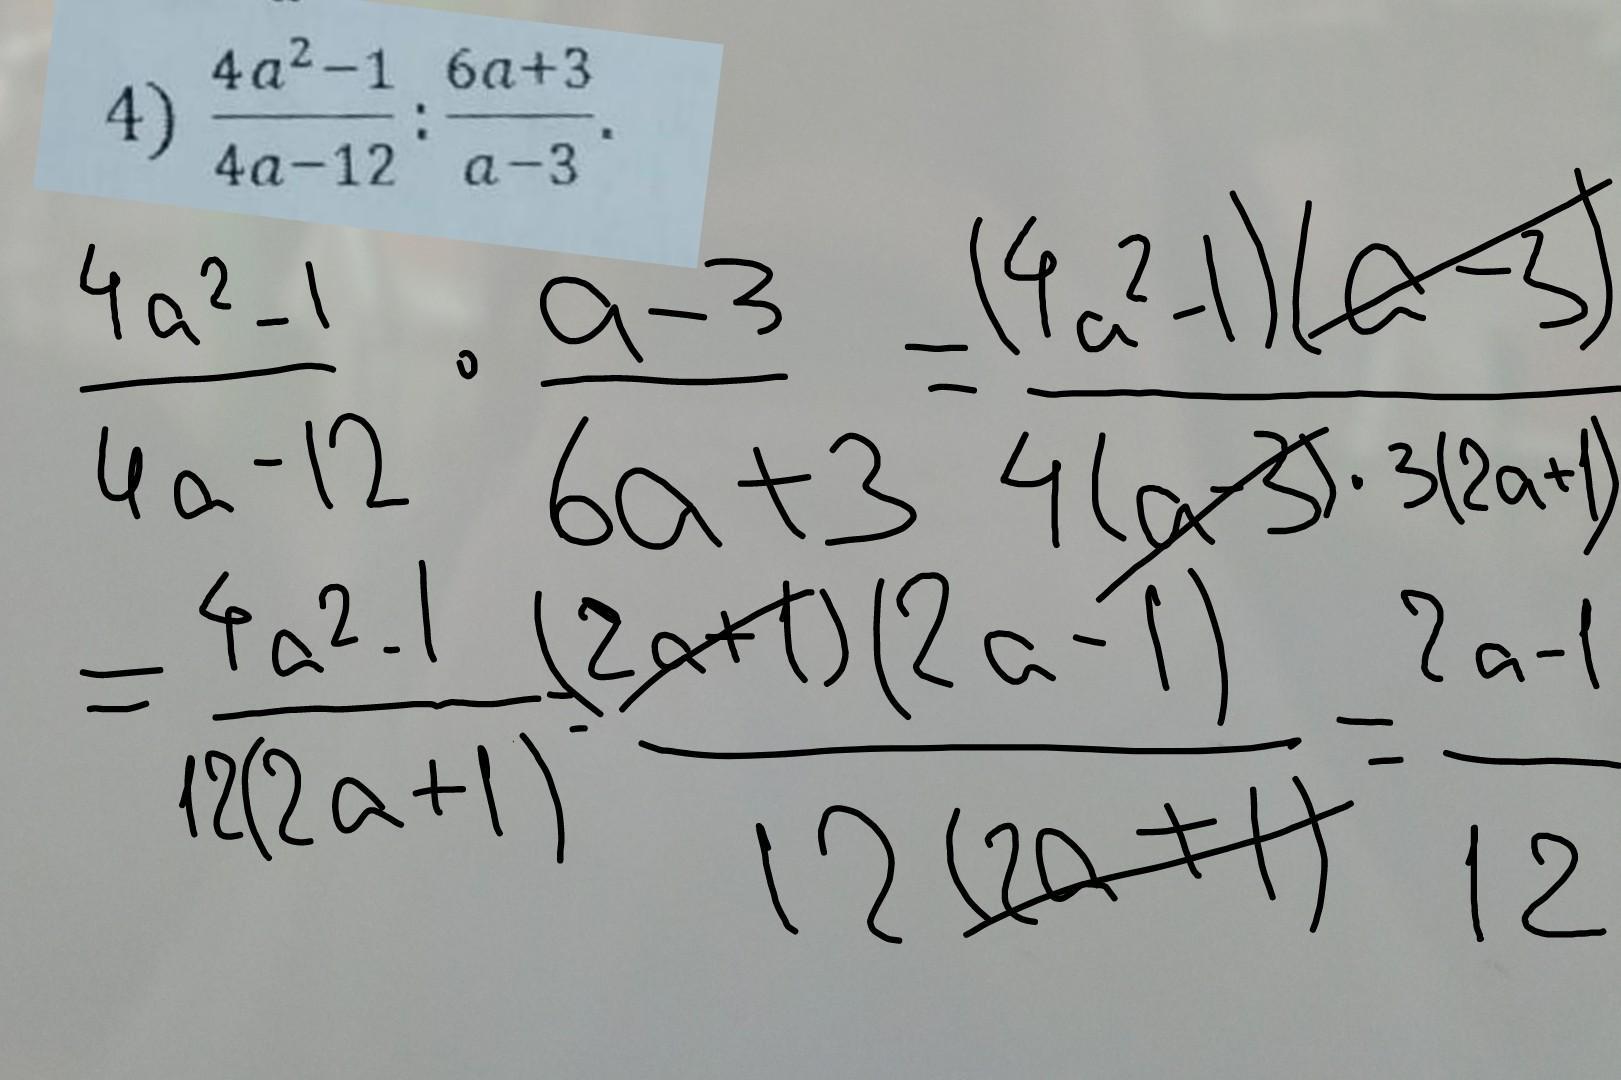 4) (4a²−1)/(4a−12) : (6a+3)/(a−3).
(4a²-1)/(4a-12) · (a-3)/(6a+3) = ((4a²-1)(a-3))/(4(a-3)·3(2a+1))
= (4a²-1)/(12(2a+1)) = ((2a+1)(2a-1))/(12(2a+1)) = (2a-1)/12